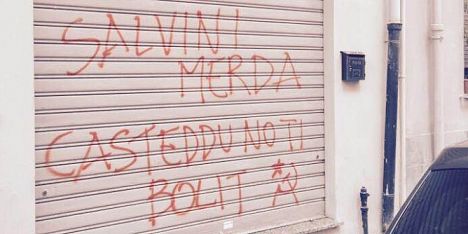 SALVINI
MERDA
CASTEDDU NO TI
BOLIT